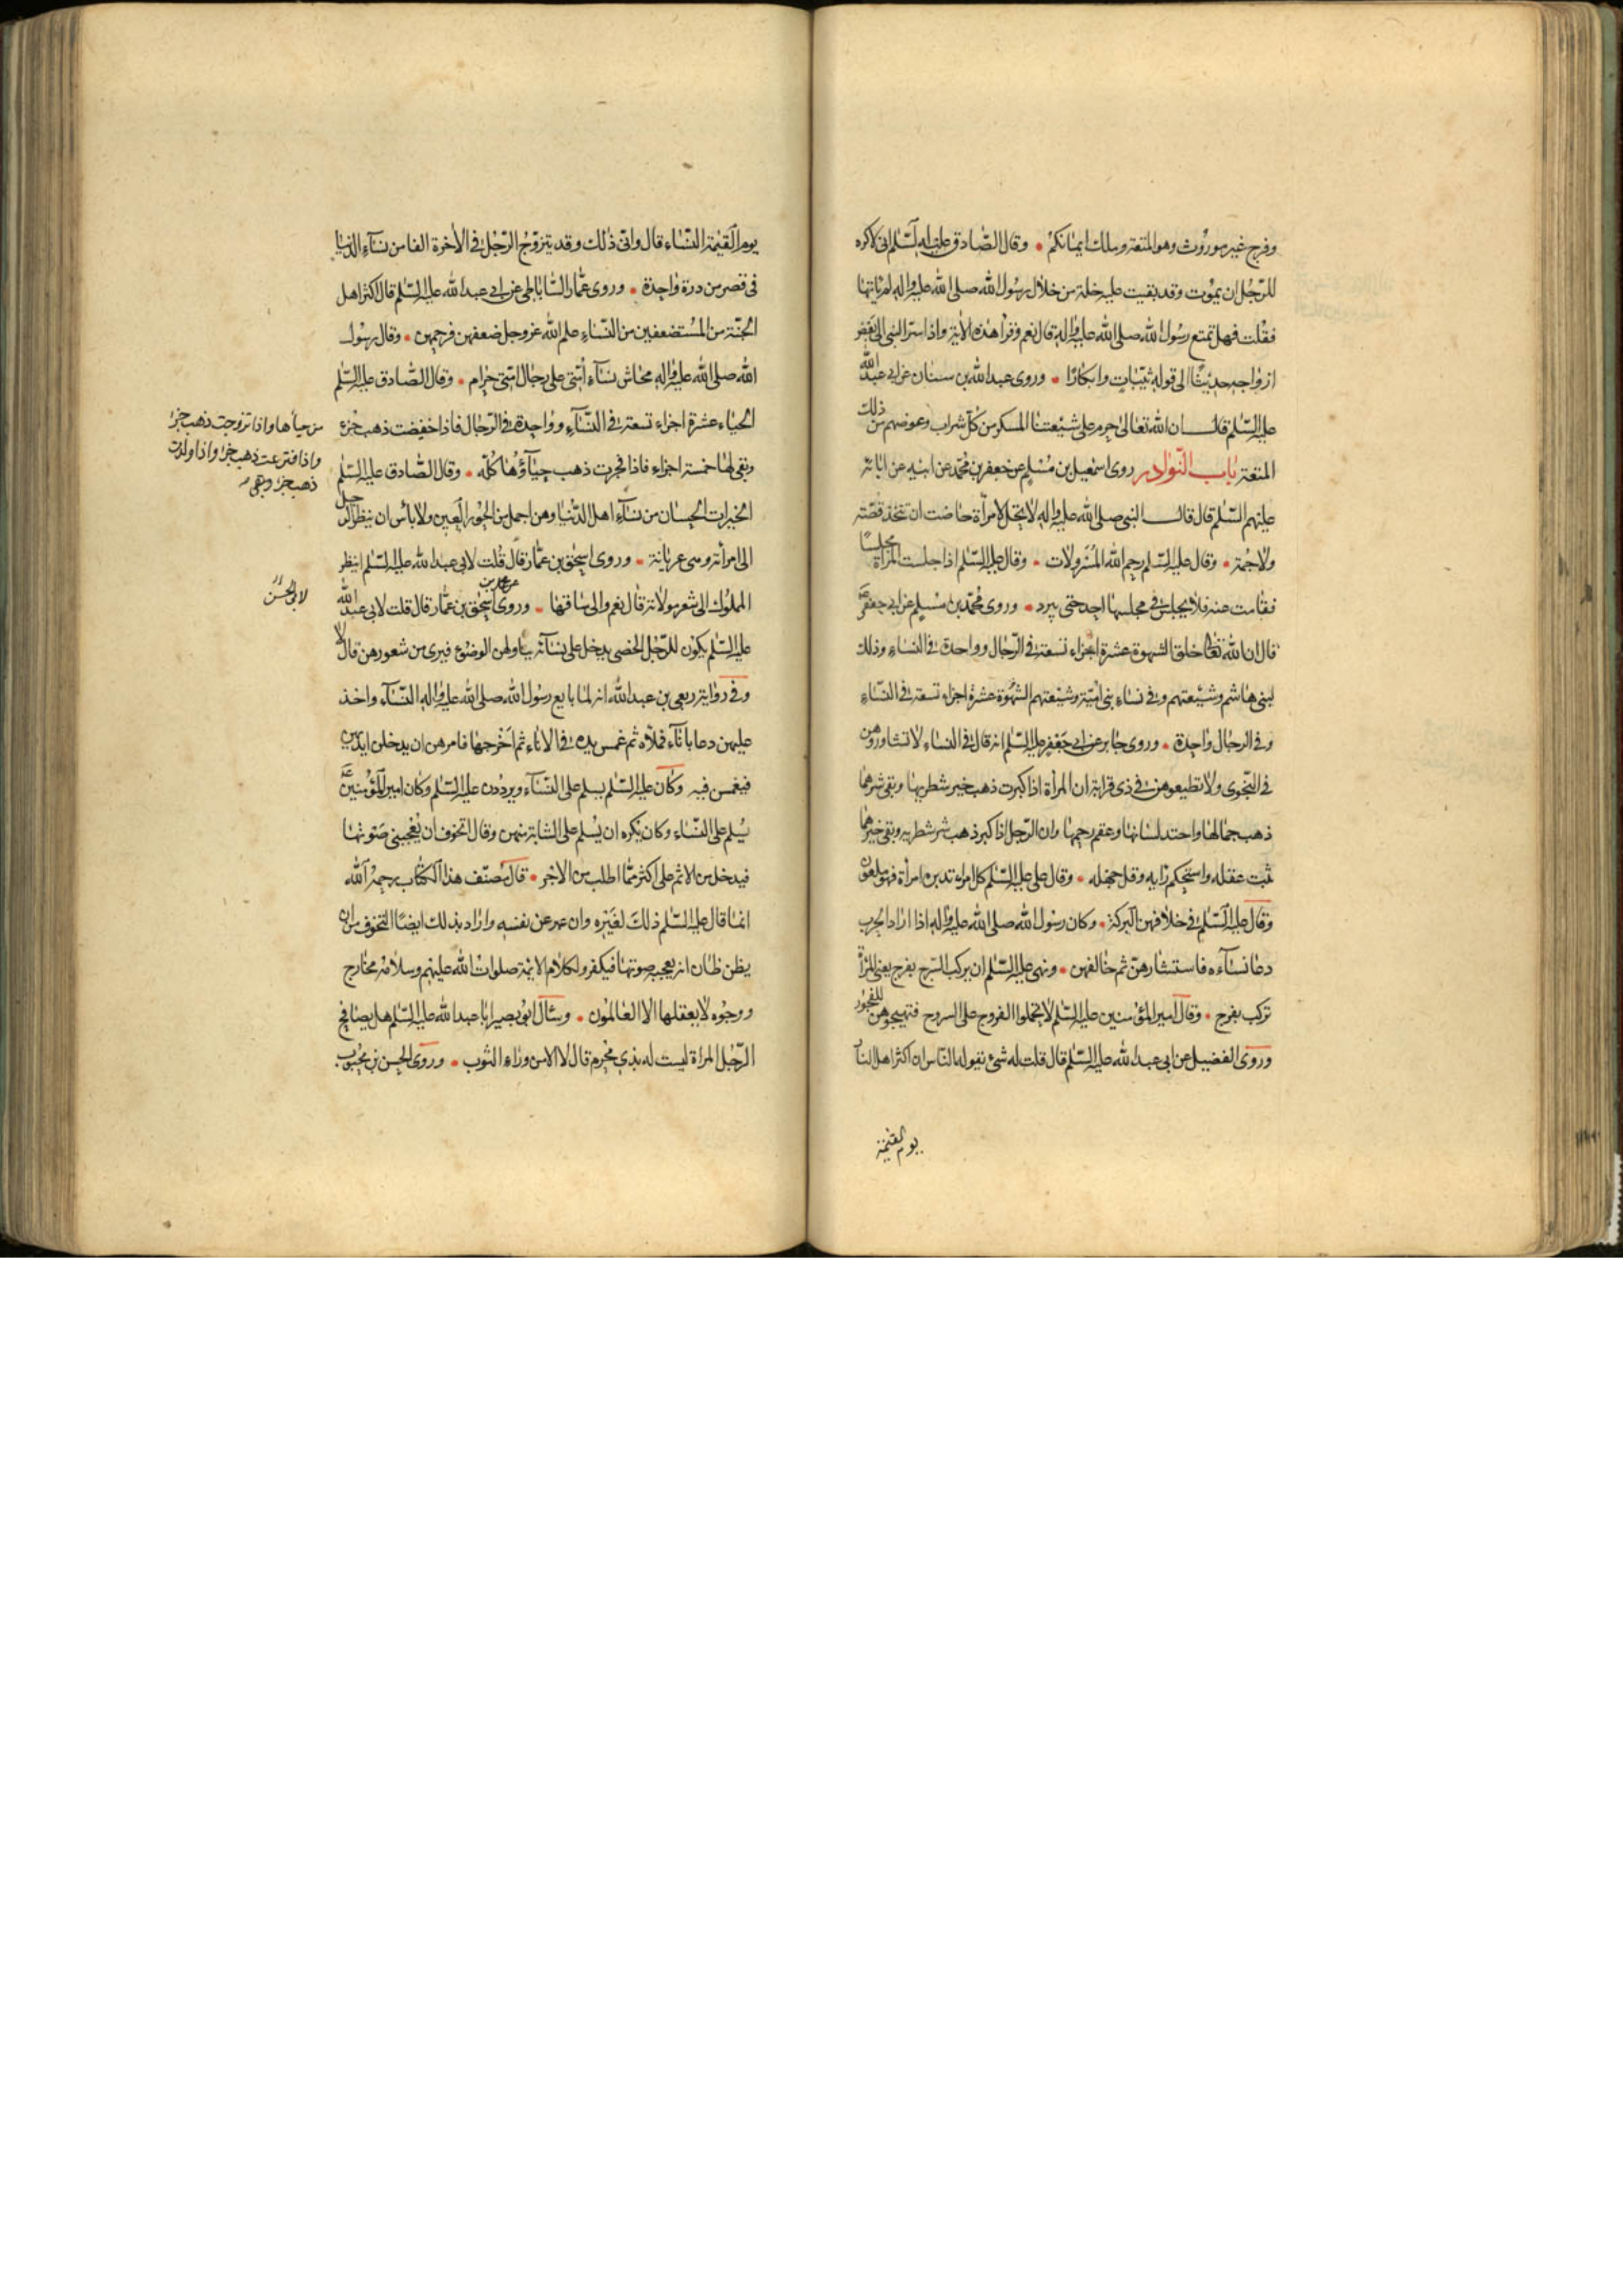 وفرج غير موروث وهو المتعة وملك ايمانكم وقال الصادق عليه السلم انى لاكره
للرجل ان يموت وقد بقيت عليه خلة من خلال رسول الله صلى الله عليه واله لم ياتها
فقلت فهل تمتع رسول الله صلى الله عليه واله قال نعم وقرا هذه الاية واذا اسر النبى الى بعض
ازواجه حديثا الى قوله ثيبات وابكارا وروى عبد الله بن سنان عن ابى عبد الله
عليه السلم قال ان الله تعالى حرم على شيعتنا المسكر من كل شراب وعوضهم من ذلك
المتعة باب النوادر روى اسمعيل بن مسلم عن جعفر بن محمد عن ابيه عن ابائه
عليهم السلم قال قال النبى صلى الله عليه واله لا يحل لامرأة حاضت ان تتخذ قصة
ولا جمة وقال عليه السلم رحم الله المسرولات وقال عليه السلم اذا جلست المرأة مجلسا
فقامت عنه فلا يجلس فى مجلسها احد حتى يبرد وروى محمد بن مسلم عن ابى جعفر
قال ان الله تعالى خلق الشهوة عشرة اجزاء تسعة فى الرجال وواحدة فى النساء وذلك
لبنى هاشم وشيعتهم وفى نساء بنى امية وشيعتهم الشهوة عشرة اجزاء تسعة فى النساء
وفى الرجال واحدة وروى جابر عن ابى جعفر عليه السلم انه قال فى النساء لا تشاوروهن
فى النجوى ولا تطيعوهن فى ذى قرابة ان المرأة اذا كبرت ذهب خير شطريها وبقى شرهما
ذهب جمالها واحتد لسانها وعقم رحمها وان الرجل اذا كبر ذهب شر شطريه وبقى خيرهما
ثبت عقله واستحكم رايه وقل جهله وقال على عليه السلم كل امرء تدبره امرأة فهو ملعون
وقال عليه السلم فى خلافهن البركة وكان رسول الله صلى الله عليه واله اذا اراد الحرب
دعا نساءه فاستشارهن ثم خالفهن ونهى عليه السلم ان يركب السرج بفرج يعنى المرأة
تركب بفرج وقال امير المؤمنين عليه السلم لا تحملوا الفروج على السروج فتهيجوهن للفجور
وروى الفضيل عن ابى عبد الله عليه السلم قال قلت له شئ يقوله الناس ان اكثر اهل النار
يوم القيمة
يوم القيمة النساء قال وانى ذلك وقد يتزوج الرجل فى الاخرة الفا من نساء الدنيا
فى قصر من درة واحدة وروى عمار الساباطى عن ابى عبد الله عليه السلم قال اكثر اهل
الجنة من المستضعفين من النساء علم الله عز وجل ضعفهن فرحمهن وقال رسول
الله صلى الله عليه واله محاش نساء امتى على رجال امتى حرام وقال الصادق عليه السلم
الحياء عشرة اجزاء تسعة فى النساء وواحدة فى الرجال فاذا خفضت ذهب جزء
من حيائها واذا تزوجت ذهب جزء
واذا افترعت ذهب جزء واذا ولدت
ذهب جزء وبقى
وبقى لها خمسة اجزاء فاذا فجرت ذهب حياؤها كله وقال الصادق عليه السلم
الخيرات الحسان من نساء اهل الدنيا وهن اجمل من الحور العين ولا بأس ان ينظر الرجل
الى امرأته وهى عريانة وروى اسحق بن عمار قال قلت لابى عبد الله عليه السلم اينظر
المملوك الى شعر مولاته قال نعم والى ساقها وروى اسحق بن عمار قال قلت لابى عبد الله
لابى الحسن
عليه السلم يكون للرجل الخصى يدخل على نسائه يناولهن الوضوء فيرى من شعورهن قال لا
وفى رواية ربعى بن عبد الله انه لما بايع رسول الله صلى الله عليه واله النساء واخذ
عليهن دعا باناء فملاه ثم غمس يده فى الاناء ثم اخرجها فامرهن ان يدخلن ايديهن
فيغمس فيه وكان عليه السلم يسلم على النساء ويرددن عليه السلم وكان امير المؤمنين
يسلم على النساء وكان يكره ان يسلم على الشابة منهن وقال اتخوف ان يعجبنى صوتها
فيدخل من الاثم على اكثر مما اطلب من الاجر قال مصنف هذا الكتاب رحمه الله
انما قال عليه السلم ذلك لغيره وان عبر عن نفسه واراد بذلك ايضا التخوف من ان
يظن ظان انه يعجبه صوتها فيكفر ولكلام الائمة صلوات الله عليهم وسلامه مخارج
ووجوه لا يعقلها الا العالمون وسئال ابو بصير ابا عبد الله عليه السلم هل يصافح
الرجل المراة ليست له بذى محرم قال لا الا من وراء الثوب وروى الحسن بن محبوب